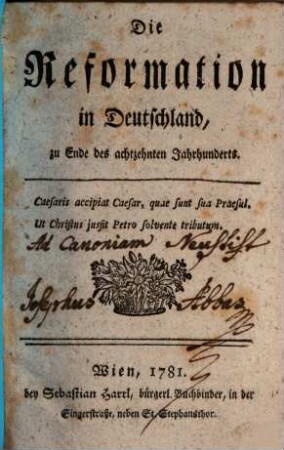 Die
Reformation
in Deutschland,
zu Ende des achtzehnten Jahrhunderts.
Caesaris accipiat Caesar, quae sunt sua Praesul.
Ut Christus jussit Petro solvente tributum.
Ad Canoniam Neustift
Josephus Abbas
Wien, 1781.
bey Sebastian Hartl, bürgerl. Buchbinder, in der
Singerstraße, neben St. Stephansthor.